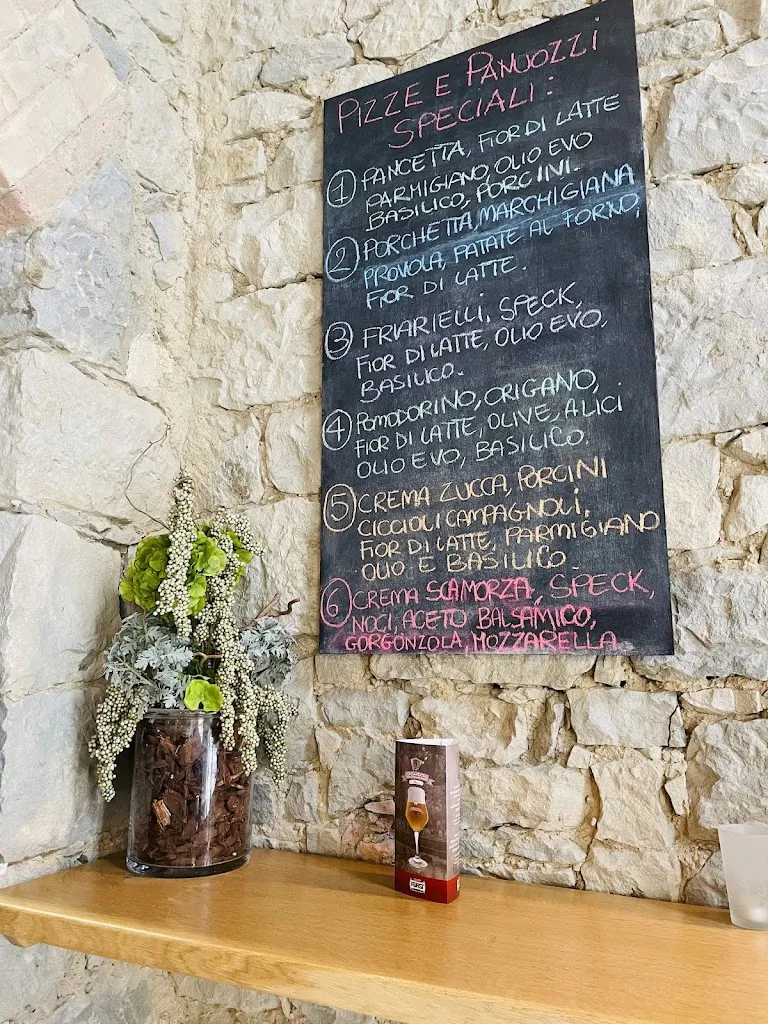 PIZZE E PANUOZZI
SPECIALI:
① PANCETTA, FIOR DI LATTE
PARMIGIANO, OLIO EVO
BASILICO, PORCINI.
② PORCHETTA, MARCHIGIANA
PROVOLA, PATATE AL FORNO,
FIOR DI LATTE.
③ FRIARIELLI, SPECK,
FIOR DI LATTE, OLIO EVO,
BASILICO.
④ POMODORINO, ORIGANO,
FIOR DI LATTE, OLIVE, ALICI
OLIO EVO, BASILICO.
⑤ CREMA ZUCCA, PORCINI
CICCIOLI CAMPAGNOLI,
FIOR DI LATTE, PARMIGIANO
OLIO E BASILICO.
⑥ CREMA SCAMORZA, SPECK,
NOCI, ACETO BALSAMICO,
GORGONZOLA, MOZZARELLA